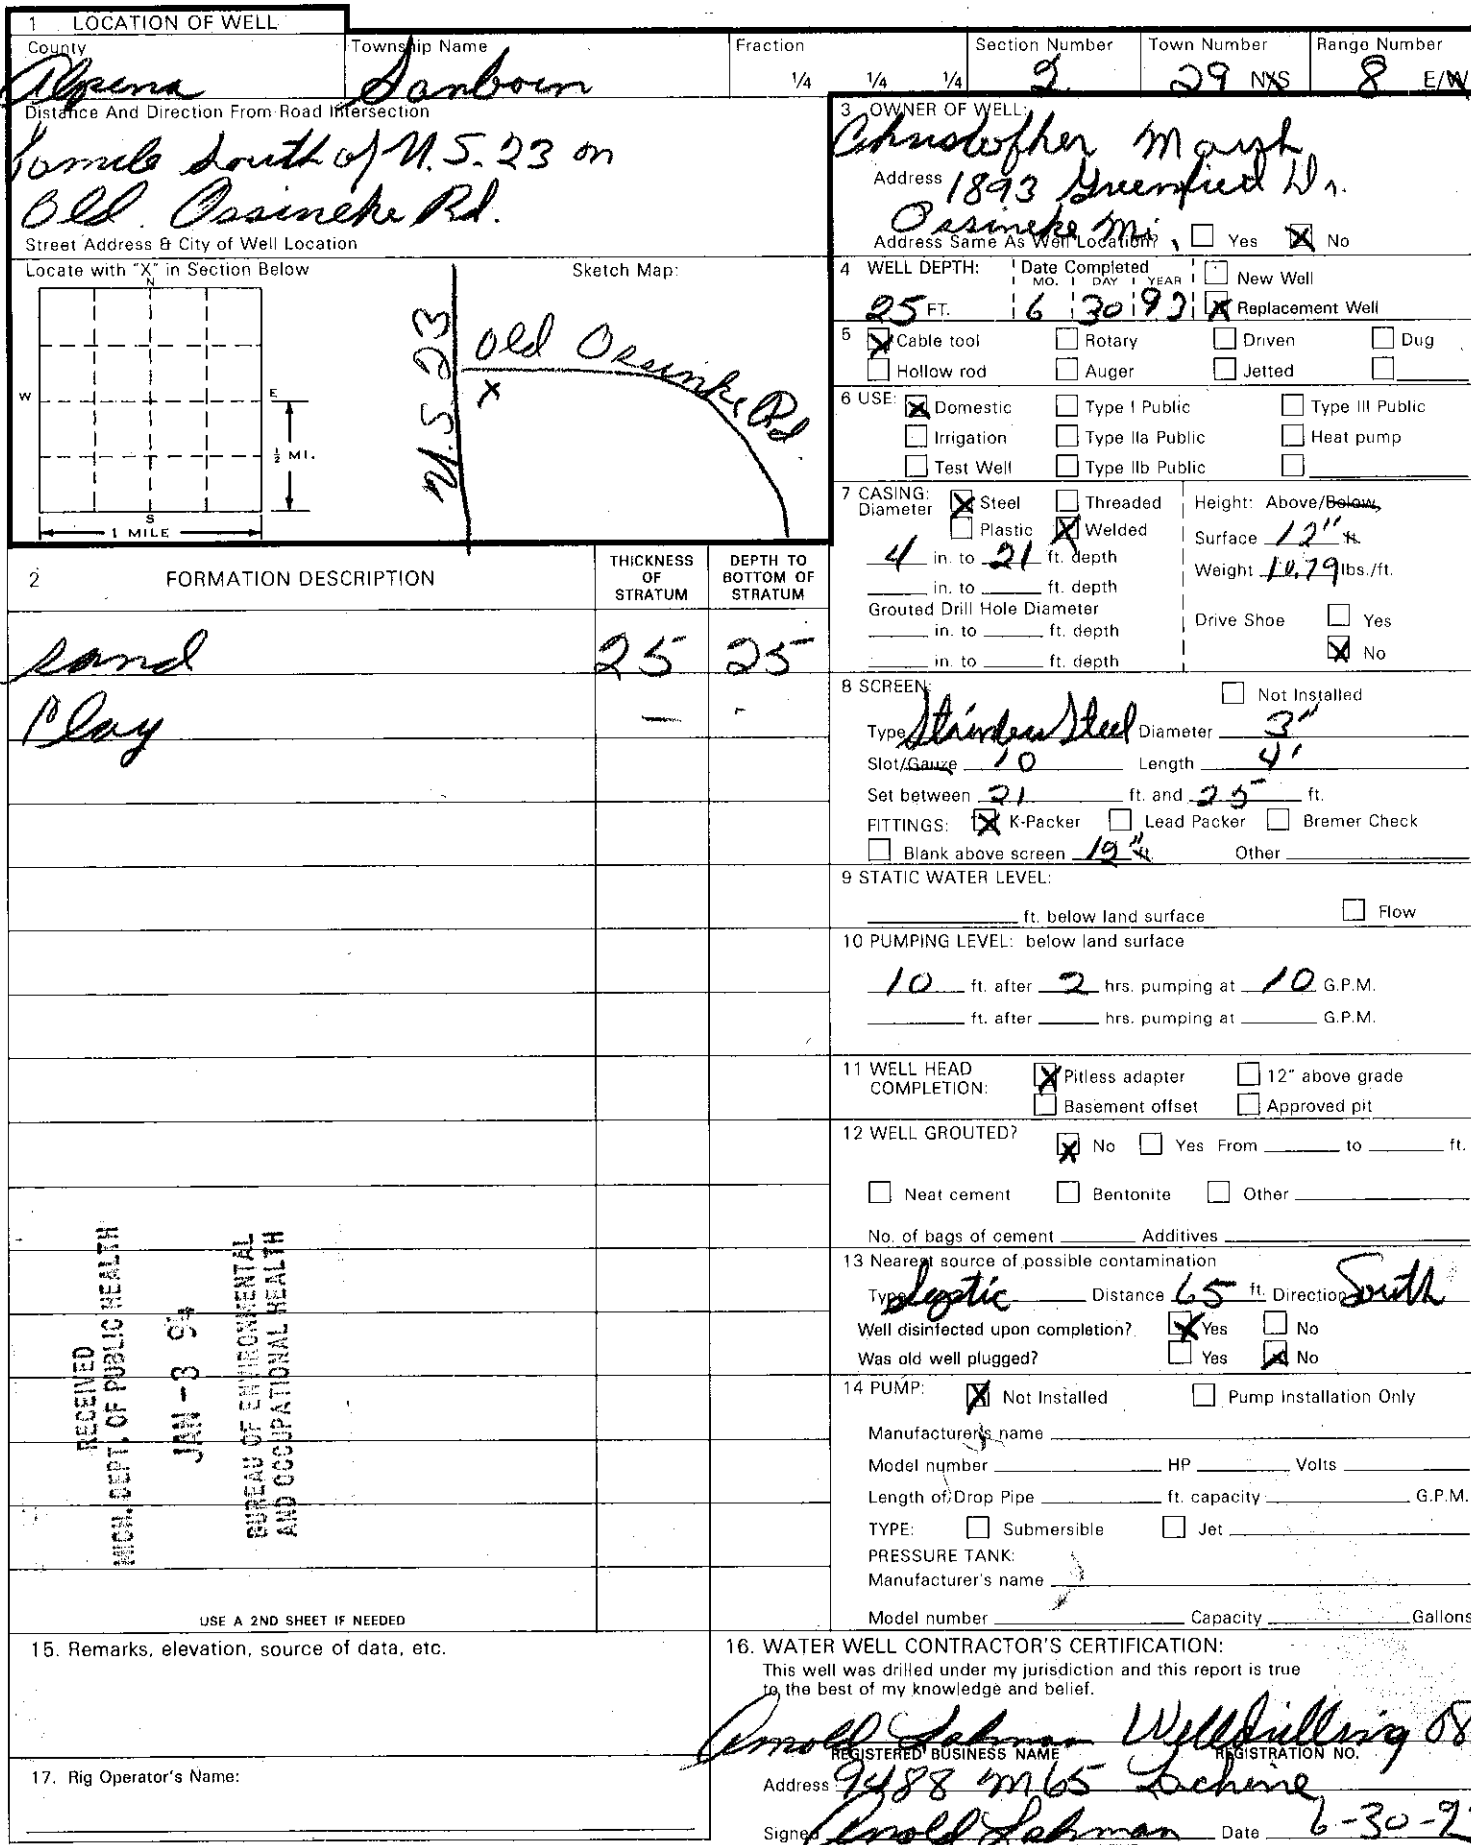 1 LOCATION OF WELL
County Township Name Fraction Section Number Town Number Range Number
Alpena Sanborn 1/4 1/4 1/4 2 29 N/S 8 E/W
Distance And Direction From Road Intersection
South of U.S. 23 on
Old Ossineke Rd.
Street Address & City of Well Location
Locate with "X" in Section Below Sketch Map:
N
W E
S
1/2 MI.
1 MILE
U.S. 23
Old Ossineke Rd
X
3 OWNER OF WELL:
Christopher Marsh
Address 1893 Greenfield Dr.
Ossineke Mi,
Address Same As Well Location? Yes X No
4 WELL DEPTH: Date Completed New Well
MO. DAY YEAR
25 FT. 6 30 93 X Replacement Well
5 X Cable tool Rotary Driven Dug
Hollow rod Auger Jetted
6 USE: X Domestic Type I Public Type III Public
Irrigation Type IIa Public Heat pump
Test Well Type IIb Public
7 CASING: X Steel Threaded Height: Above/Below
Diameter Plastic X Welded Surface 12" ft.
4 in. to 21 ft. depth Weight 10.79 lbs./ft.
in. to ft. depth
Grouted Drill Hole Diameter Drive Shoe Yes
in. to ft. depth X No
in. to ft. depth
2 FORMATION DESCRIPTION THICKNESS OF STRATUM DEPTH TO BOTTOM OF STRATUM
sand 25 25
Clay — -
8 SCREEN: Not Installed
Type Stainless Steel Diameter 3"
Slot/Gauze 10 Length 4'
Set between 21 ft. and 25 ft.
FITTINGS: X K-Packer Lead Packer Bremer Check
Blank above screen ft. Other
9 STATIC WATER LEVEL:
ft. below land surface Flow
10 PUMPING LEVEL: below land surface
10 ft. after 2 hrs. pumping at 10 G.P.M.
ft. after hrs. pumping at G.P.M.
11 WELL HEAD COMPLETION: X Pitless adapter 12" above grade
Basement offset Approved pit
12 WELL GROUTED? X No Yes From to ft.
Neat cement Bentonite Other
No. of bags of cement Additives
13 Nearest source of possible contamination
Type Septic Distance 65 ft. Direction South
Well disinfected upon completion? X Yes No
Was old well plugged? Yes X No
14 PUMP: X Not Installed Pump Installation Only
Manufacturer's name
Model number HP Volts
Length of Drop Pipe ft. capacity G.P.M.
TYPE: Submersible Jet
PRESSURE TANK:
Manufacturer's name
Model number Capacity Gallons
RECEIVED
MICH. DEPT. OF PUBLIC HEALTH
JAN -3 94
BUREAU OF ENVIRONMENTAL
AND OCCUPATIONAL HEALTH
USE A 2ND SHEET IF NEEDED
15. Remarks, elevation, source of data, etc.
17. Rig Operator's Name:
16. WATER WELL CONTRACTOR'S CERTIFICATION:
This well was drilled under my jurisdiction and this report is true
to the best of my knowledge and belief.
Arnold Lahman Welldrilling 08
REGISTERED BUSINESS NAME REGISTRATION NO.
Address 9488 M65 Lachine
Signed Arnold Lahman Date 6-30-9